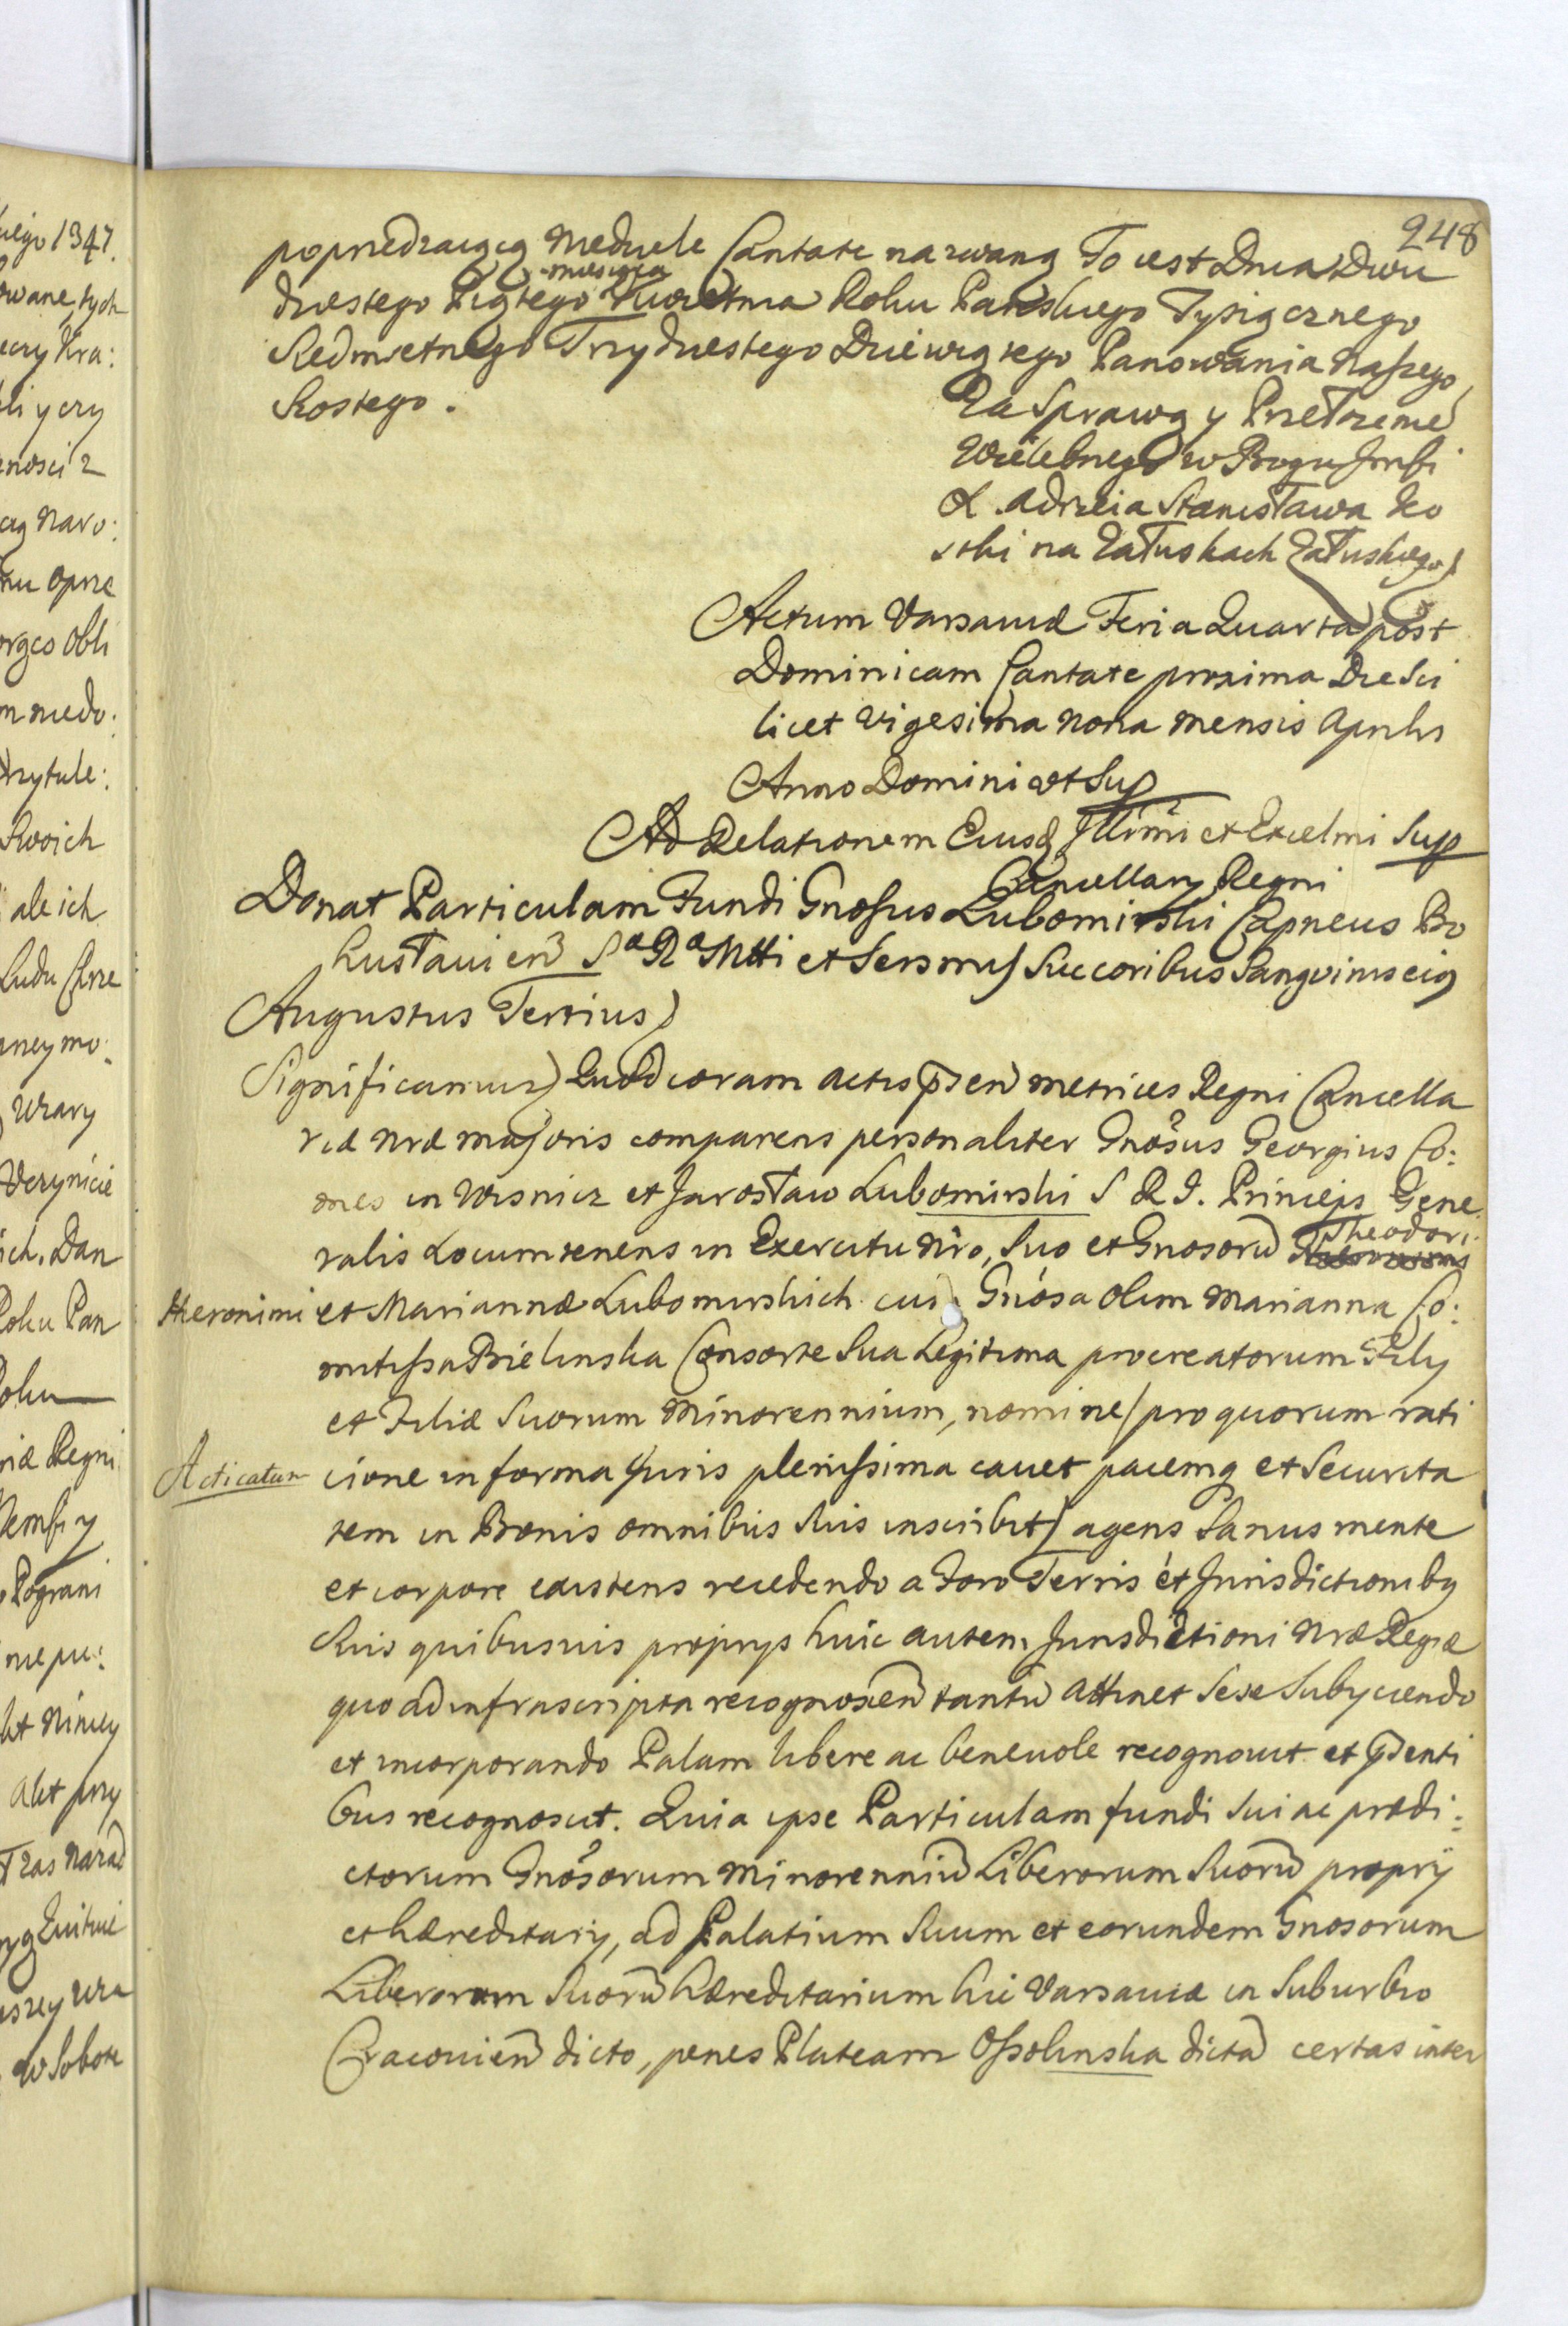 248
poprzedzaiącą Niedziele Cantate nazwaną To iest Dnia Dwu
dziestego Piątego miesiąca Kwietnia Roku Pańskiego Tysiącznego
Siedmsetnego Trzydziestego Dziewiątego Panowania Naszego
Szostego.
Za Sprawą y Przełożenie
Wielebnego w Bogu Jmści
X. Adrzeia Stanisława Ko
stki na Załuskach Załuskiego
Actum Varsaviæ Feria Quarta post
Dominicam Cantate proxima Die Sci
licet Vigesima Nona Mensis Aprilis
Anno Domini ut Sup
Ad Relationem Eiusd Illmi et Excelmi Sup
Cancellary Regni
Donat Particulam Fundi Gnosus Lubomirski Capneus Bo
husłaviens Sa Ra Mtti et Sersmis Succoribus Sangvinis eius
Augustus Tertius
Significamus Quod coram actis psen Metrices Regni Cancella
riæ Nræ majoris comparens personaliter Gnosus Georgius Co:
mes in Wisnicz et Jarosław Lubomirski S R I. Princeps Gene
ralis Locumtenens in Exercitu Nro, Suo et Gnosorũ Theodori
Hieronimi et Mariannæ Lubomirskich cum Gnosa olim Marianna Co:
mitissa Bielinska Consorte Sua Legitima procreatorum Fily
et Filiæ Suorum Minorennium, nomine pro quorum rati
Acticatum
cione in forma Juris plenissima cavet pacemq et Securita
tem in Bonis omnibus Suis inscribit agens Sanus mente
et corpore existens recedendo a Foro Terris et Jurisdictionibg
Suis quibusvis propriys huic autem Jurisdictioni Nræ Regiæ
quo ad infrascripta recognoscen tantũ attinet Sese Subyciendo
et incorporando Palam libere ac benevole recognovit et psenti
bus recognoscit. Quia ipse Particulam fundi Sui ac prædi:
ctorum Gnosorum Minorenniũ Liberorum Suorũ proprij
et hæreditarij, ad Palatium Suum et eorundem Gnosorum
Liberorum Suorũ hæreditarium hic Varsaviæ in Suburbio
Cracovien dicto, penes Plateam Ossolinska dictã certas inter